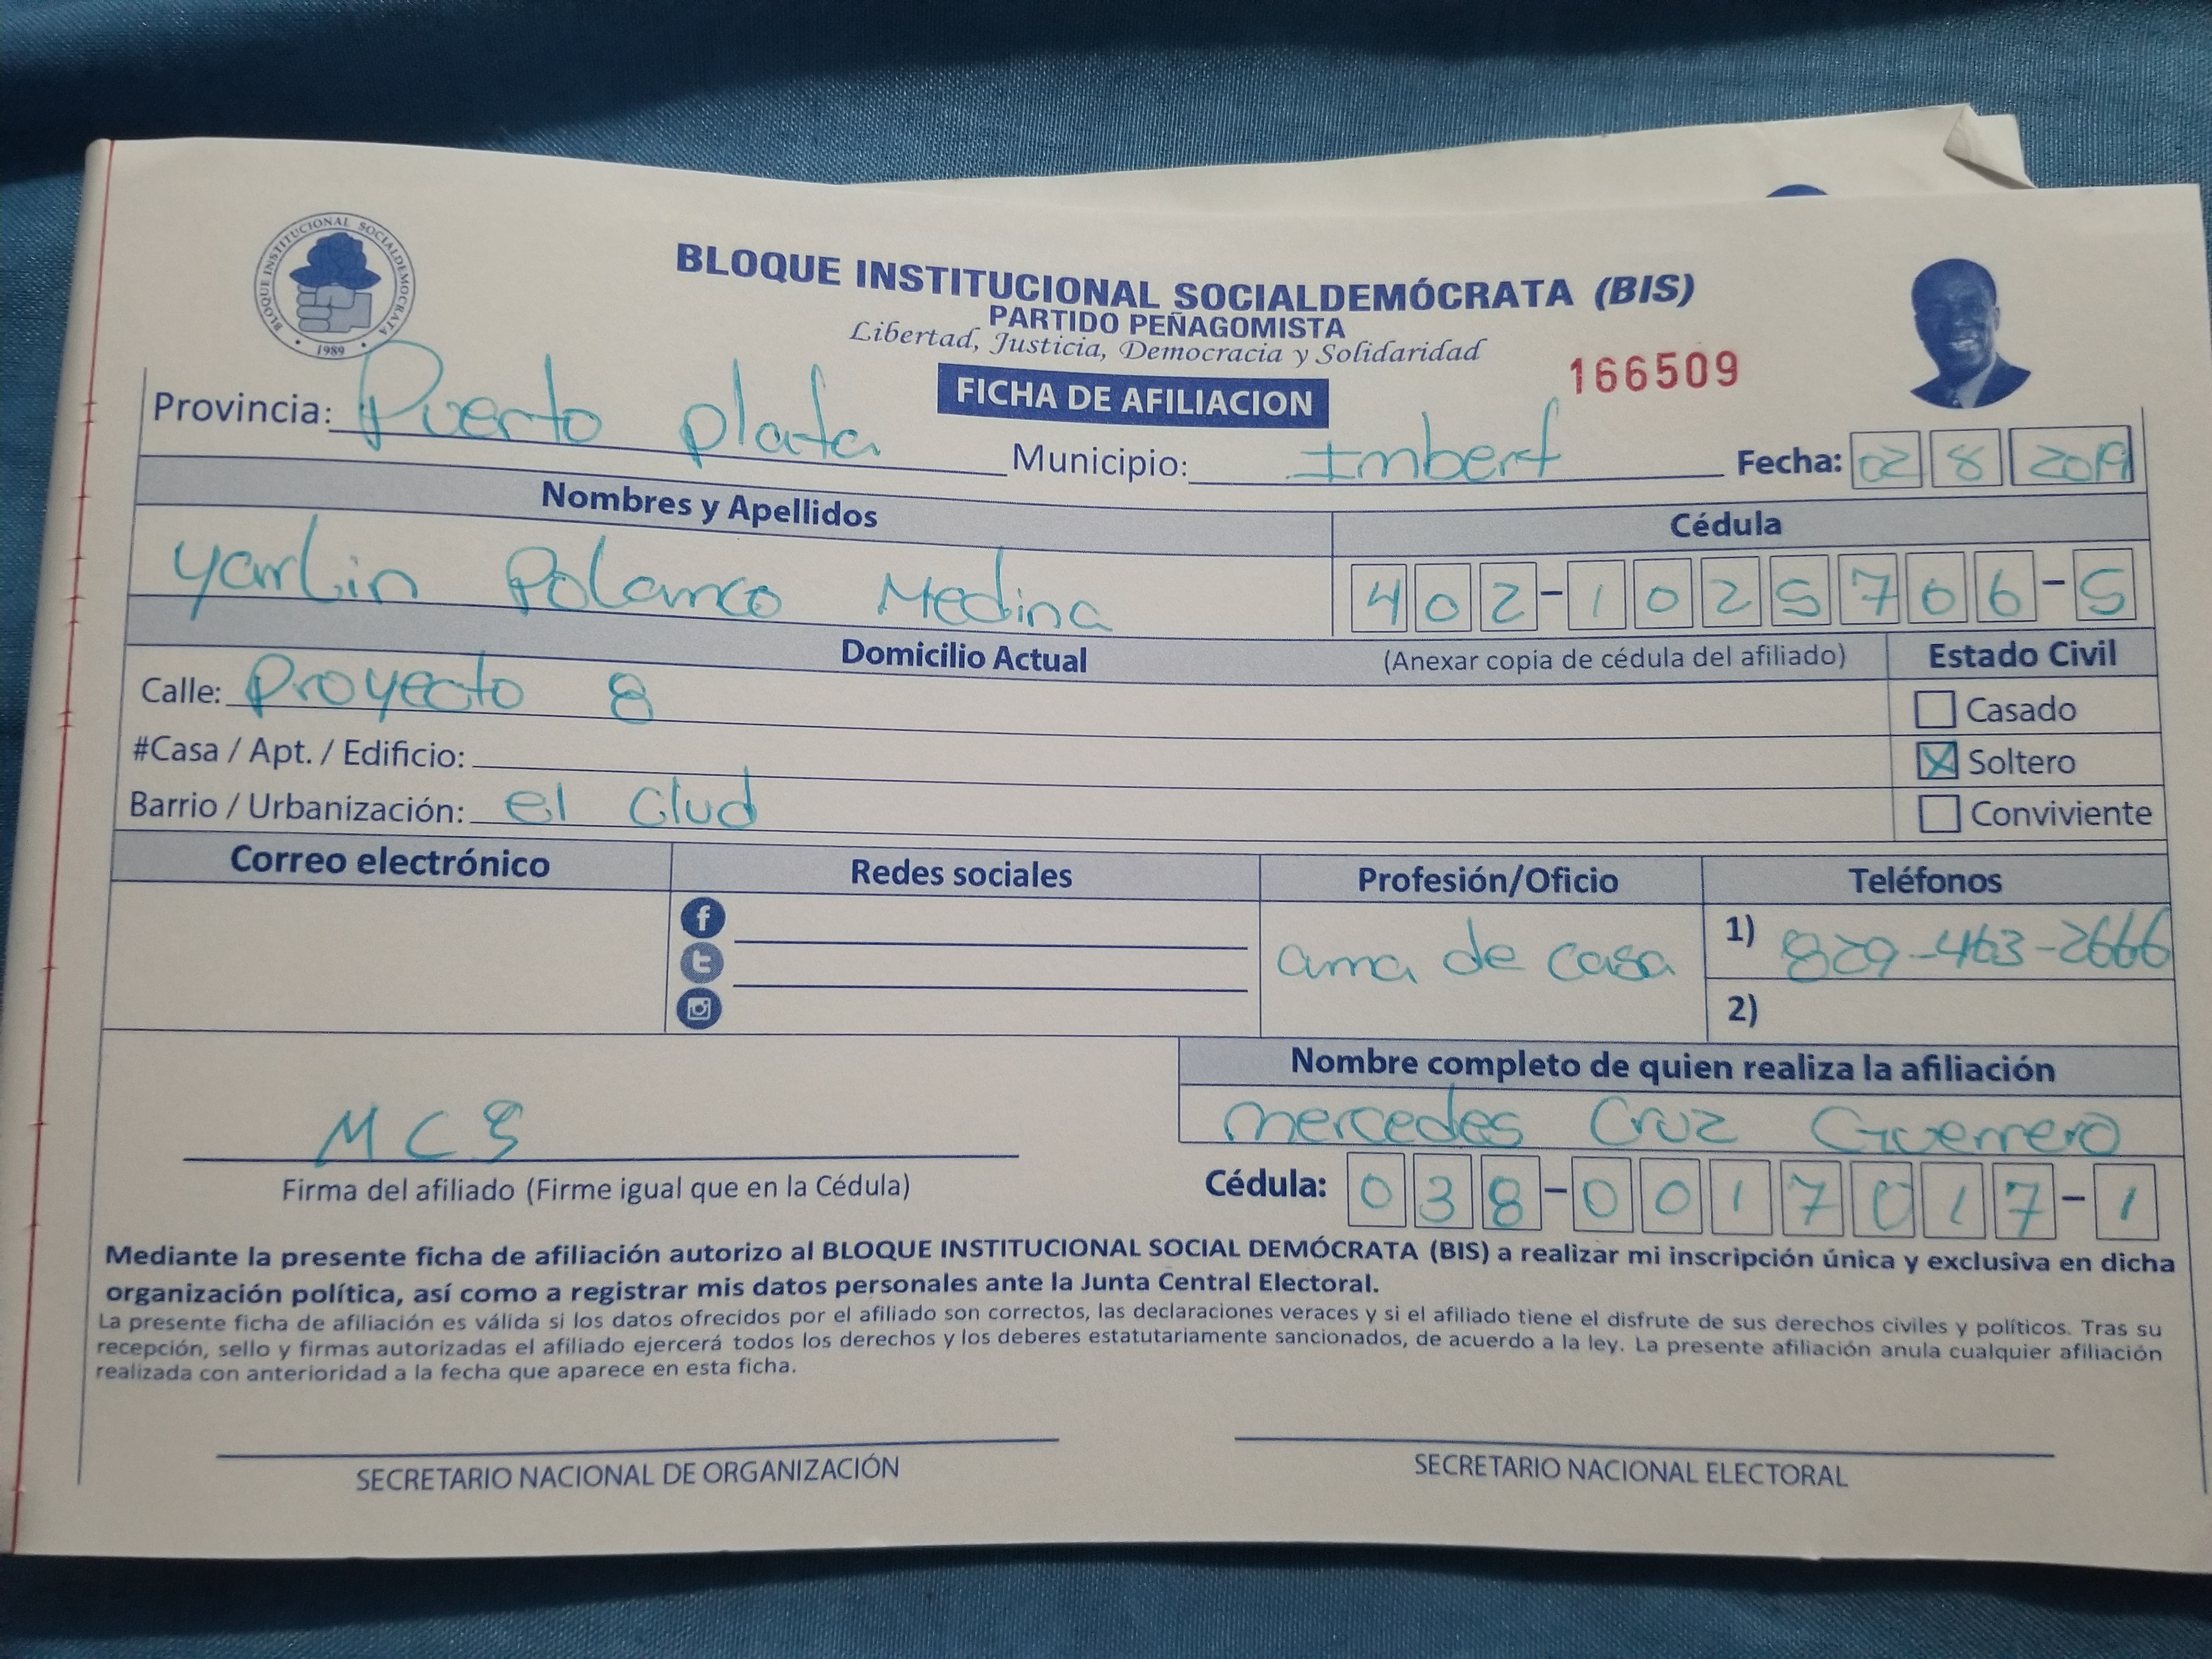 BLOQUE INSTITUCIONAL SOCIALDEMOCRATA
1989
BLOQUE INSTITUCIONAL SOCIALDEMÓCRATA (BIS)
PARTIDO PEÑAGOMISTA
Libertad, Justicia, Democracia y Solidaridad
FICHA DE AFILIACION
166509
Provincia: Puerto plata Municipio: Imbert Fecha: 02 8 2019
Nombres y Apellidos Cédula
Yarlin Polanco Medina 402-1025706-5
Domicilio Actual (Anexar copia de cédula del afiliado) Estado Civil
Calle: Proyecto 8 Casado
#Casa / Apt. / Edificio: X Soltero
Barrio / Urbanización: el Clud Conviviente
Correo electrónico Redes sociales Profesión/Oficio Teléfonos
f ama de casa 1) 829-463-2666
t
2)
Nombre completo de quien realiza la afiliación
mercedes Cruz Guerrero
MCS
Firma del afiliado (Firme igual que en la Cédula) Cédula: 038-0017017-1
Mediante la presente ficha de afiliación autorizo al BLOQUE INSTITUCIONAL SOCIAL DEMÓCRATA (BIS) a realizar mi inscripción única y exclusiva en dicha
organización política, así como a registrar mis datos personales ante la Junta Central Electoral.
La presente ficha de afiliación es válida si los datos ofrecidos por el afiliado son correctos, las declaraciones veraces y si el afiliado tiene el disfrute de sus derechos civiles y políticos. Tras su
recepción, sello y firmas autorizadas el afiliado ejercerá todos los derechos y los deberes estatutariamente sancionados, de acuerdo a la ley. La presente afiliación anula cualquier afiliación
realizada con anterioridad a la fecha que aparece en esta ficha.
SECRETARIO NACIONAL DE ORGANIZACIÓN SECRETARIO NACIONAL ELECTORAL